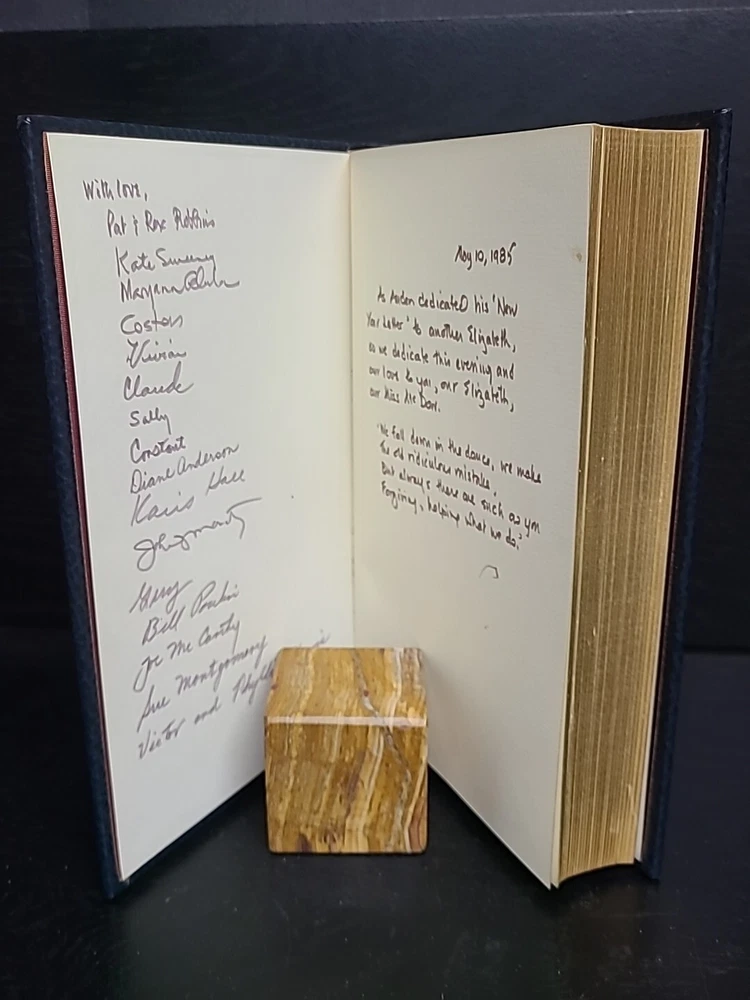 With love,
Pat & Rox Robbins
Kate Sweeny
Maryann
Coston
Vivian
Claude
Sally
Constant
Diane Anderson
Karis Hall
Gerry
Bill
Joe McCarthy
Sue Montgomery
Victor and
May 10, 1985
As Auden dedicated his 'New
Year Letter' to another Elizabeth,
so we dedicate this evening and
our love to you, our Elizabeth,
our Miss
'We fall down in the dance, we make
The old ridiculous mistake,
But always there are such as you
Forgiving, helping what we do.'